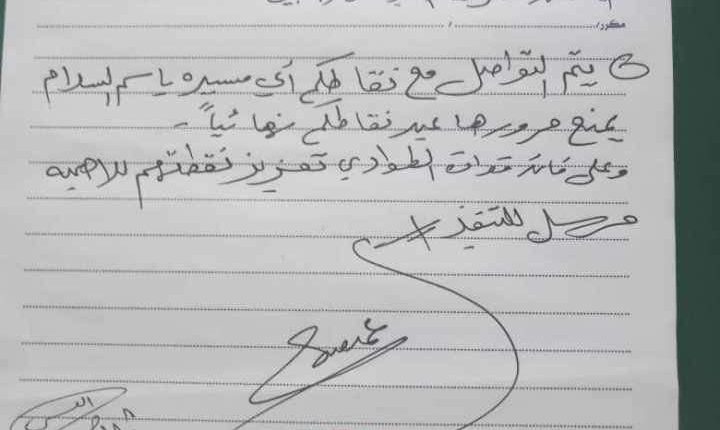 مكرر/ /
يتم التواصل مع نقاطكم أي مسيره باسم السلام
يمنع مرورها عبر نقاطكم نهائياً -
وعلى قائد قوات الطوارئ تعزيز نقطتهم للاهميه
مرسل للتنفيذ